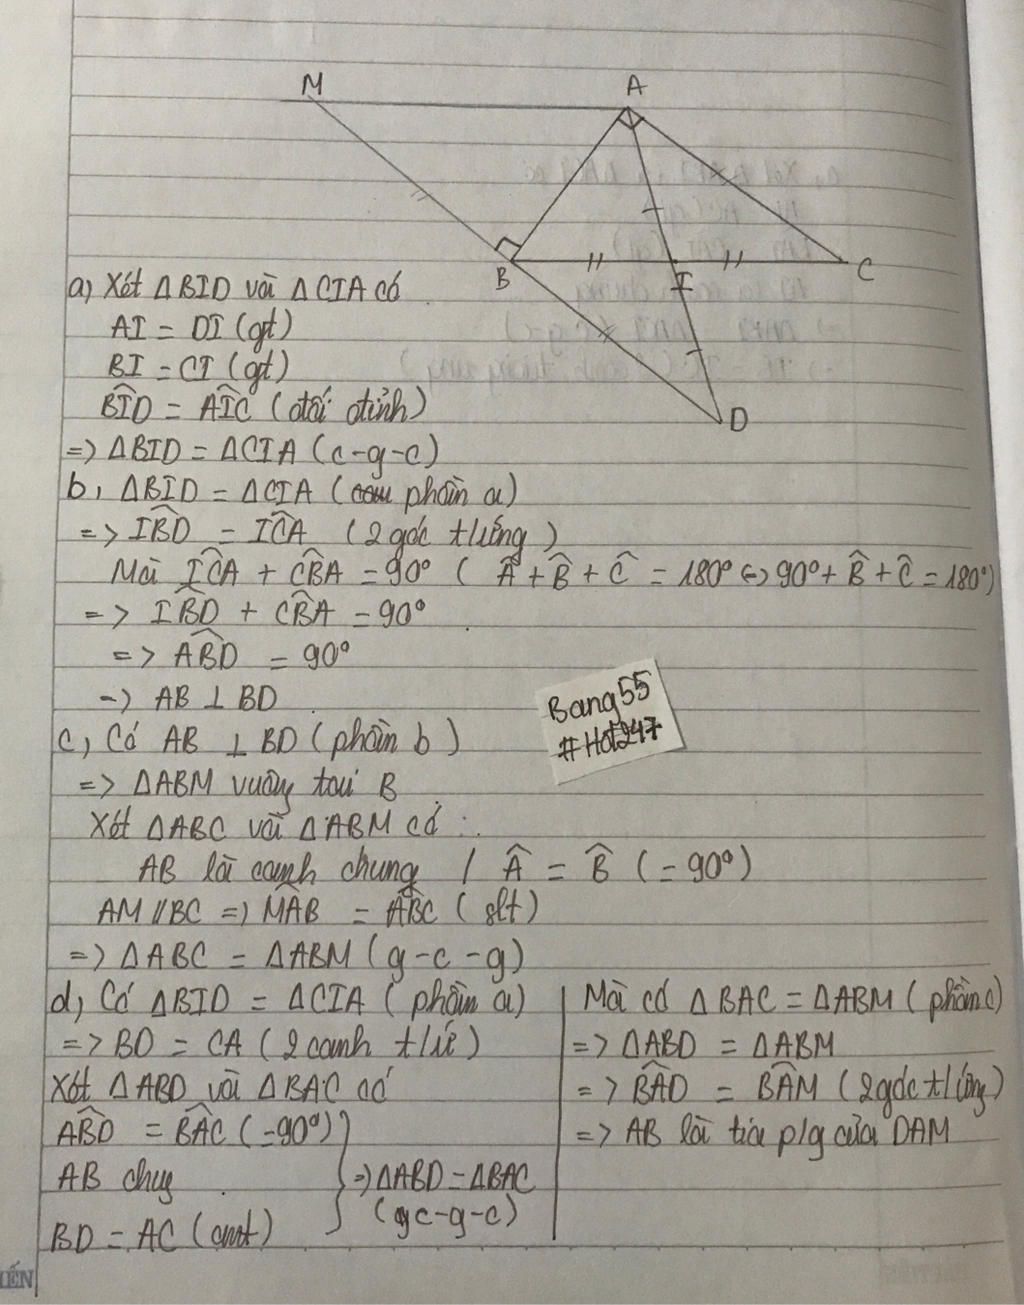 M
A
B
I
C
D
a) Xét ΔBID và ΔCIA có
AI = DI (gt)
BI = CI (gt)
BÎD = AÎC (đối đỉnh)
=> ΔBID = ΔCIA (c-g-c)
b, ΔBID = ΔCIA (phần a)
=> IB̂D = IĈA (2 góc tứng)
Mà IĈA + CB̂A = 90° ( Â + B̂ + Ĉ = 180° <=> 90° + B̂ + Ĉ = 180°)
=> IB̂D + CB̂A = 90°
=> AB̂D = 90°
-> AB ⊥ BD
Bang55
#Hot247
c, Có AB ⊥ BD (phần b)
=> ΔABM vuông tại B
Xét ΔABC và ΔABM có :
AB là cạnh chung / Â = B̂ (= 90°)
AM // BC => MÂB = AB̂C (slt)
=> ΔABC = ΔABM (g-c-g)
d, Có ΔBID = ΔCIA (phần a)
=> BD = CA (2 cạnh t/ứ)
Xét ΔABD và ΔBAC có
AB̂D = BÂC (=90°)
AB chug
BD = AC (cmt)
=> ΔABD = ΔBAC
(c-g-c)
Mà có ΔBAC = ΔABM (phần c)
=> ΔABD = ΔABM
=> BÂD = BÂM (2 góc t/ứng)
=> AB là tia p/g của DAM
ẾN